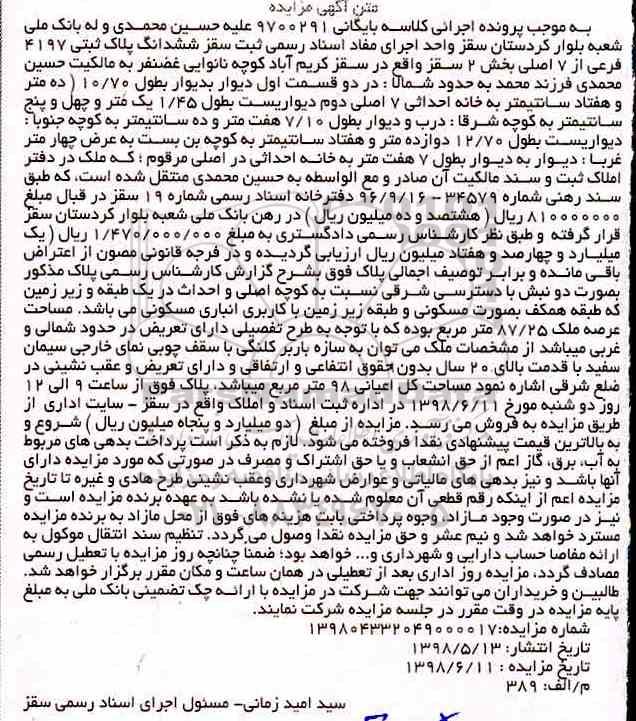 متن آگهی مزایده
به موجب پرونده اجرائی کلاسه بایگانی ۹۷۰۰۲۹۱ علیه حسین محمدی و له بانک ملی
شعبه بلوار کردستان سقز واحد اجرای مفاد اسناد رسمی ثبت سقز ششدانگ پلاک ثبتی ۴۱۹۷
فرعی از ۷ اصلی بخش ۲ سقز واقع در سقز کریم آباد کوچه نانوایی غضنفر به مالکیت حسین
محمدی فرزند محمد به حدود شمالا : در دو قسمت اول دیوار بدیوار بطول ۱۰/۷۰ ( ده متر
و هفتاد سانتیمتر به خانه احداثی ۷ اصلی دوم دیواریست بطول ۱/۴۵ یک متر و چهل و پنج
سانتیمتر به کوچه شرقا : درب و دیوار بطول ۷/۱۰ هفت متر و ده سانتیمتر به کوچه جنوبا :
دیواریست بطول ۱۲/۷۰ دوازده متر و هفتاد سانتیمتر به کوچه بن بست به عرض چهار متر
غربا : دیوار به دیوار بطول ۷ هفت متر به خانه احداثی در اصلی مرقوم : که ملک در دفتر
املاک ثبت و سند مالکیت آن صادر و مع الواسطه به حسین محمدی منتقل شده است، که طبق
سند رهنی شماره ۳۴۵۷۹ - ۹۶/۹/۱۶ دفترخانه اسناد رسمی شماره ۱۹ سقز در قبال مبلغ
۸۱۰۰۰۰۰۰۰ ریال ( هشتصد و ده میلیون ریال ) در رهن بانک ملی شعبه بلوار کردستان سقز
قرار گرفته و طبق نظر کارشناس رسمی دادگستری به مبلغ ۱/۴۷۰/۰۰۰/۰۰۰ ریال ( یک
میلیارد و چهارصد و هفتاد میلیون ریال ارزیابی گردیده و در فرجه قانونی مصون از اعتراض
باقی مانده و برابر توصیف اجمالی پلاک فوق بشرح گزارش کارشناس رسمی پلاک مذکور
بصورت دو نبش با دسترسی شرقی نسبت به کوچه اصلی و احداث در یک طبقه و زیر زمین
که طبقه همکف بصورت مسکونی و طبقه زیر زمین با کاربری انباری مسکونی می باشد. مساحت
عرصه ملک ۸۷/۲۵ متر مربع بوده که با توجه به طرح تفصیلی دارای تعریض در حدود شمالی و
غربی میباشد از مشخصات ملک می توان به سازه باربر کلنگی با سقف چوبی نمای خارجی سیمان
سفید با قدمت بالای ۲۰ سال بدون حقوق انتفاعی و ارتفاقی و دارای تعریض و عقب نشینی در
ضلع شرقی اشاره نمود مساحت کل اعیانی ۹۸ متر مربع میباشد. پلاک فوق از ساعت ۹ الی ۱۲
روز دو شنبه مورخ ۱۳۹۸/۶/۱۱ در اداره ثبت اسناد و املاک واقع در سقز - سایت اداری از
طریق مزایده به فروش می رسد. مزایده از مبلغ ( دو میلیارد و پنجاه میلیون ریال ) شروع و
به بالاترین قیمت پیشنهادی نقداً فروخته می شود. لازم به ذکر است پرداخت بدهی های مربوط
به آب، برق، گاز اعم از حق انشعاب و یا حق اشتراک و مصرف در صورتی که مورد مزایده دارای
آنها باشد و نیز بدهی های مالیاتی و عوارض شهرداری وعقب نشینی طرح هادی و غیره تا تاریخ
مزایده اعم از اینکه رقم قطعی آن معلوم شده یا نشده باشد به عهده برنده مزایده است و
نیز در صورت وجود مازاد، وجوه پرداختی بابت هزینه های فوق از محل مازاد به برنده مزایده
مسترد خواهد شد و نیم عشر و حق مزایده نقداً وصول می گردد. تنظیم سند انتقال موکول به
ارائه مفاصا حساب دارایی و شهرداری و... خواهد بود؛ ضمنا چنانچه روز مزایده با تعطیل رسمی
مصادف گردد، مزایده روز اداری بعد از تعطیلی در همان ساعت و مکان مقرر برگزار خواهد شد.
طالبین و خریداران می توانند جهت شرکت در مزایده با ارائه چک تضمینی بانک ملی به مبلغ
پایه مزایده در وقت مقرر در جلسه مزایده شرکت نمایند.
شماره مزایده:۱۳۹۸۰۴۳۳۲۰۴۹۰۰۰۰۱۷
تاریخ انتشار: ۱۳۹۸/۵/۱۳
تاریخ مزایده : ۱۳۹۸/۶/۱۱
م/الف: ۳۸۹
سید امید زمانی- مسئول اجرای اسناد رسمی سقز